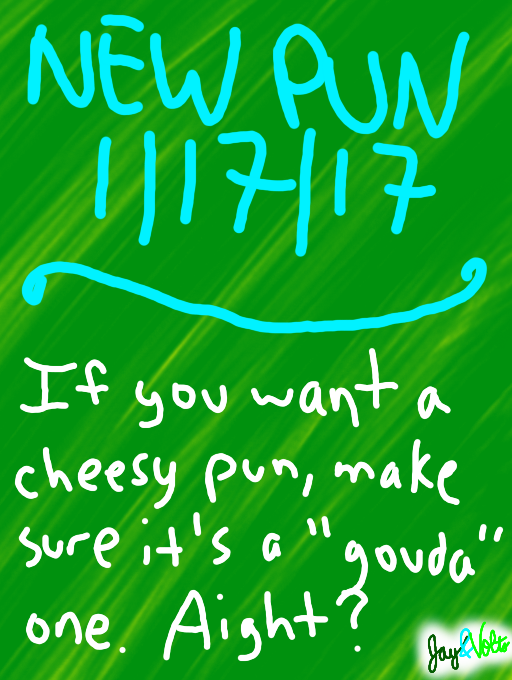 NEW PUN
1/17/17
If you want a
cheesy pun, make
sure it's a "gouda"
one. Aight?
Jay&Volts